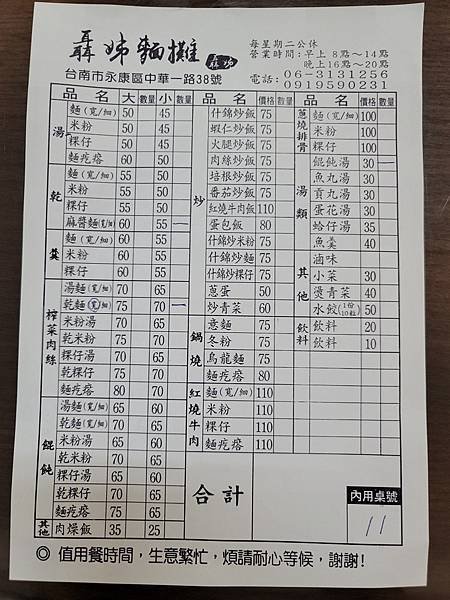 聶姊麵攤
每星期二公休
營業時間:早上8點～14點
晚上16點～20點
台南市永康區中華一路38號
電話:06-3131256
0919590231
品名 大 數量 小 數量
湯
麵(寬/細) 50 45
米粉 50 45
粿仔 50 45
麵疙瘩 60 50
乾
麵(寬/細) 55 50
米粉 55 50
粿仔 55 50
麻醬麵(寬/細) 60 55 一
羹
麵(寬/細) 60 55
米粉 60 55
粿仔 60 55
榨菜肉絲
湯麵(寬/細) 70 65
乾麵(寬/細) 75 70 一
米粉湯 70 65
乾米粉 75 70
粿仔湯 70 65
乾粿仔 75 70
麵疙瘩 80 70
餛飩
湯麵(寬/細) 65 60
乾麵(寬/細) 70 65
米粉湯 65 60
乾米粉 70 65
粿仔湯 65 60
乾粿仔 70 65
麵疙瘩 75 65
其他
肉燥飯 35 25
品名 價格 數量
炒
什錦炒飯 75
蝦仁炒飯 75
火腿炒飯 75
肉絲炒飯 75
培根炒飯 75
番茄炒飯 75
紅燒牛肉飯 110
蛋包飯 80
什錦炒米粉 75
什錦炒麵 75
什錦炒粿仔 75
蔥蛋 50
炒青菜 60
鍋燒
意麵 75
冬粉 75
烏龍麵 75
麵疙瘩 80
紅燒牛肉
麵(寬/細) 110
米粉 110
粿仔 110
麵疙瘩 110
品名 價格 數量
蔥燒排骨
麵(寬/細) 100
米粉 100
粿仔 100
湯類
餛飩湯 30 一
魚丸湯 30
貢丸湯 30
蛋花湯 30
蛤仔湯 35
魚羹 40
其他
滷味
小菜 30
燙青菜 40
水餃(1份10粒) 50
飲料
飲料 20
飲料 10
合計
內用桌號
11
◎ 值用餐時間，生意繁忙，煩請耐心等候，謝謝!